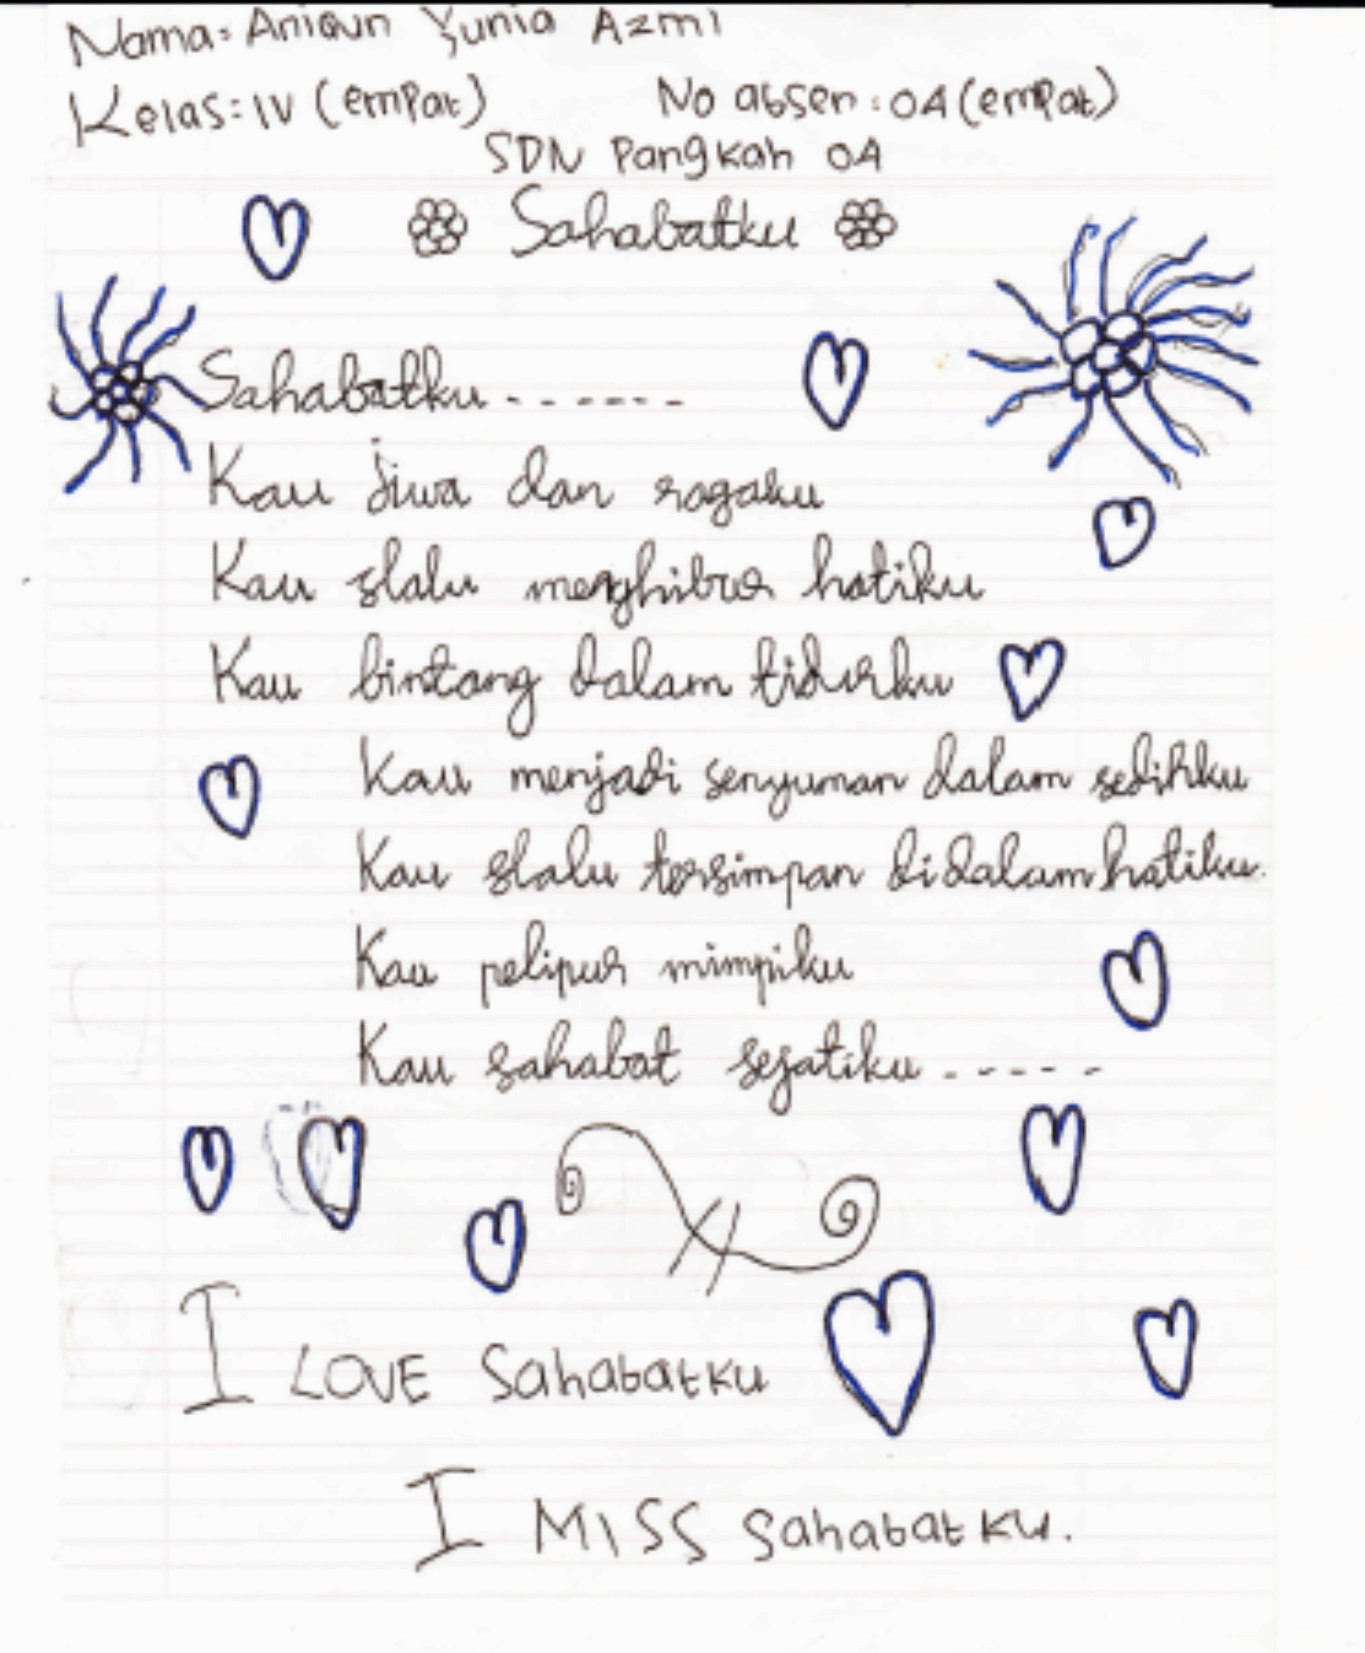 Nama: Aniqun Yunia Azmi
Kelas: IV (empat) No absen: 04 (empat)
SDN Pangkah 04
Sahabatku
Sahabatku.......
Kau jiwa dan ragaku
Kau slalu menghibur hatiku
Kau bintang dalam tidurku
Kau menjadi senyuman dalam sedihku
Kau slalu tersimpan didalam hatiku.
Kau pelipur mimpiku
Kau sahabat sejatiku.....
I LOVE Sahabatku
I MISS Sahabatku.